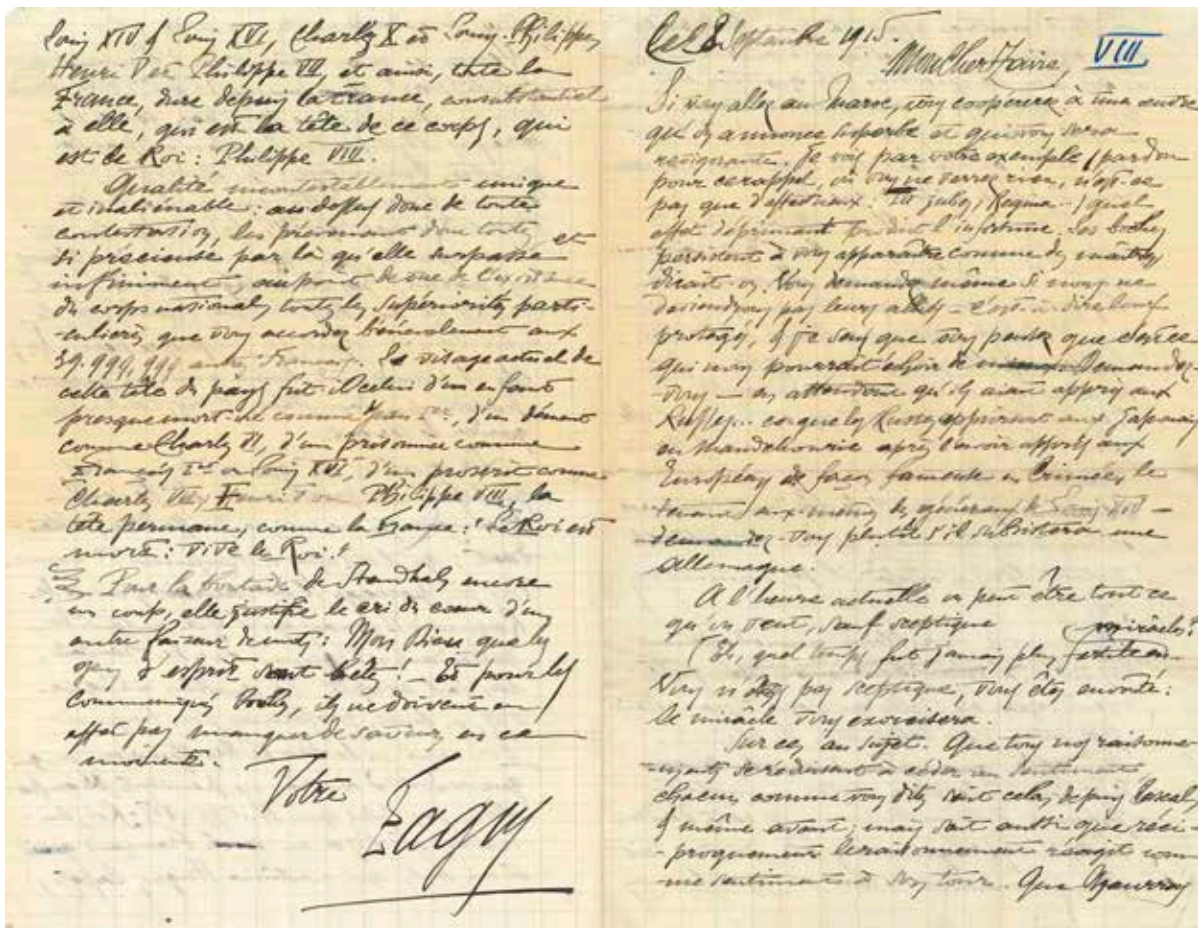 Louis XIV & Louis XVI, Charles X et Louis-Philippe,
Henri V et Philippe VII, et ainsi, toute la
France, dure depuis la France, consubstantiel
à elle, qui est la tête de ce corps, qui
est le Roi : Philippe VIII.
Qualité incontestablement unique
et inaliénable : au dessus donc de toute
contestation, les prévenant donc toutes, et
si précieuse par là qu'elle surpasse
infiniment, au point de vue de l'existence
du corps national, toutes les supériorités parti-
culières que vous accordez bénévolement aux
39.999,999 autres Français. Le visage actuel de
cette tête du pays fut-il celui d'un enfant
presque mort-né comme Jean 1er, d'un dément
comme Charles VI, d'un prisonnier comme
François 1er ou Louis XVI, d'un proscrit comme
Charles VII, Henri V ou Philippe VIII, la
tête permane, comme la France : "Le Roi est
mort : vive le Roi."
Pour la boutade de Stendhal, encore
un coup, elle justifie le cri du cœur d'un
autre faiseur de mots : Mon Dieu que les
gens d'esprit sont bêtes ! – Et pour les
communiqués boches, ils ne doivent en
effet pas manquer de saveur, en ce
moment.
Votre
Lagny
Ce 28 Septembre 1915.
VIII
Mon Cher
Si vous allez au Maroc, vous coopérerez à une œuvre
qu'on annonce superbe et qui vous sera
revigorante. Je vois par votre exemple (pardon
pour ce rappel, où vous ne verrez rien, n'est-ce
pas que d'affectueux : Regina –) quel
effet déprimant produit l'infortune. Les boches
persistent à vous apparaître comme des maîtres
dirait-on. Vous demandez même si nous ne
deviendrons pas leurs alliés – c'est-à-dire leurs
protégés, & je sens que vous pensez que c'est ce
qui nous pourrait échoir de Demandez-
-vous – en attendant qu'ils aient appris aux
Russes... ce que les Russes apprirent aux Japonais
en Mandchourie après l'avoir appris aux
Européens de façon fameuse en Crimée, le
tenant aux-mêmes des généraux de Louis XIV –
demandez-vous plutôt s'il subsistera une
Allemagne.
A l'heure actuelle on peut être tout ce
qu'on veut, sauf sceptique
(Et, quel temps fut jamais plus fertile en miracles ?
Vous n'êtes pas sceptique, vous êtes envoûté :
le miracle vous exorcisera.
Sur ce, au sujet. Que tous nos raisonne-
-ments se réduisent à céder au sentiment
chacun, comme vous dites, sait cela, depuis Pascal,
& même avant ; mais sait aussi que réci-
-proquement le raisonnement réagit comme
-me sentiment à son tour. Que Maurras